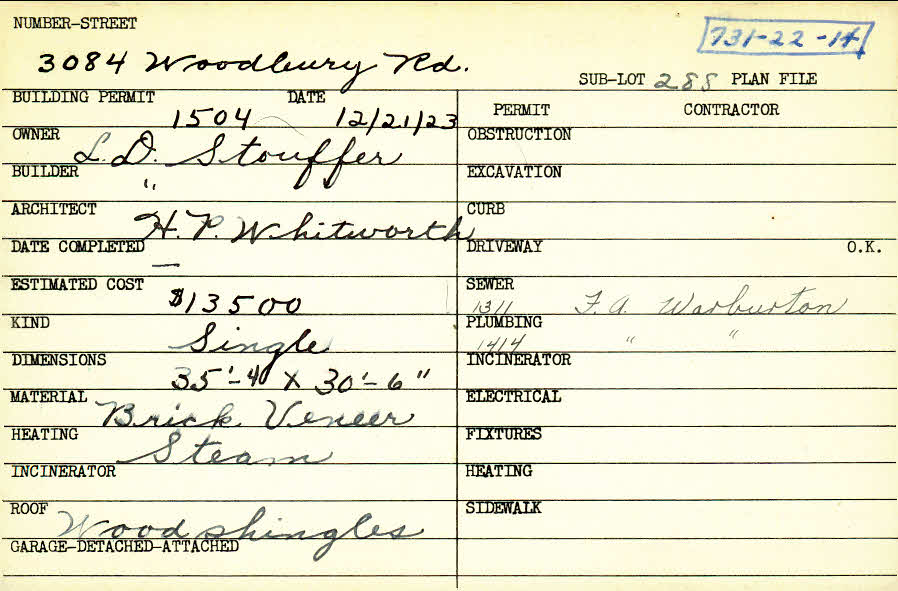 NUMBER-STREET
731-22-14
3084 Woodbury Rd.
SUB-LOT 288 PLAN FILE
BUILDING PERMIT 1504 DATE 12/21/23
OWNER L. D. Stouffer
BUILDER "
ARCHITECT H. P. Whitworth
DATE COMPLETED —
ESTIMATED COST $13500
KIND Single
DIMENSIONS 35'-4" x 30'-6"
MATERIAL Brick Veneer
HEATING Steam
INCINERATOR
ROOF Wood shingles
GARAGE-DETACHED-ATTACHED
PERMIT CONTRACTOR
OBSTRUCTION
EXCAVATION
CURB
DRIVEWAY O.K.
SEWER
1311 F. A. Warburton
PLUMBING
1414 " "
INCINERATOR
ELECTRICAL
FIXTURES
HEATING
SIDEWALK